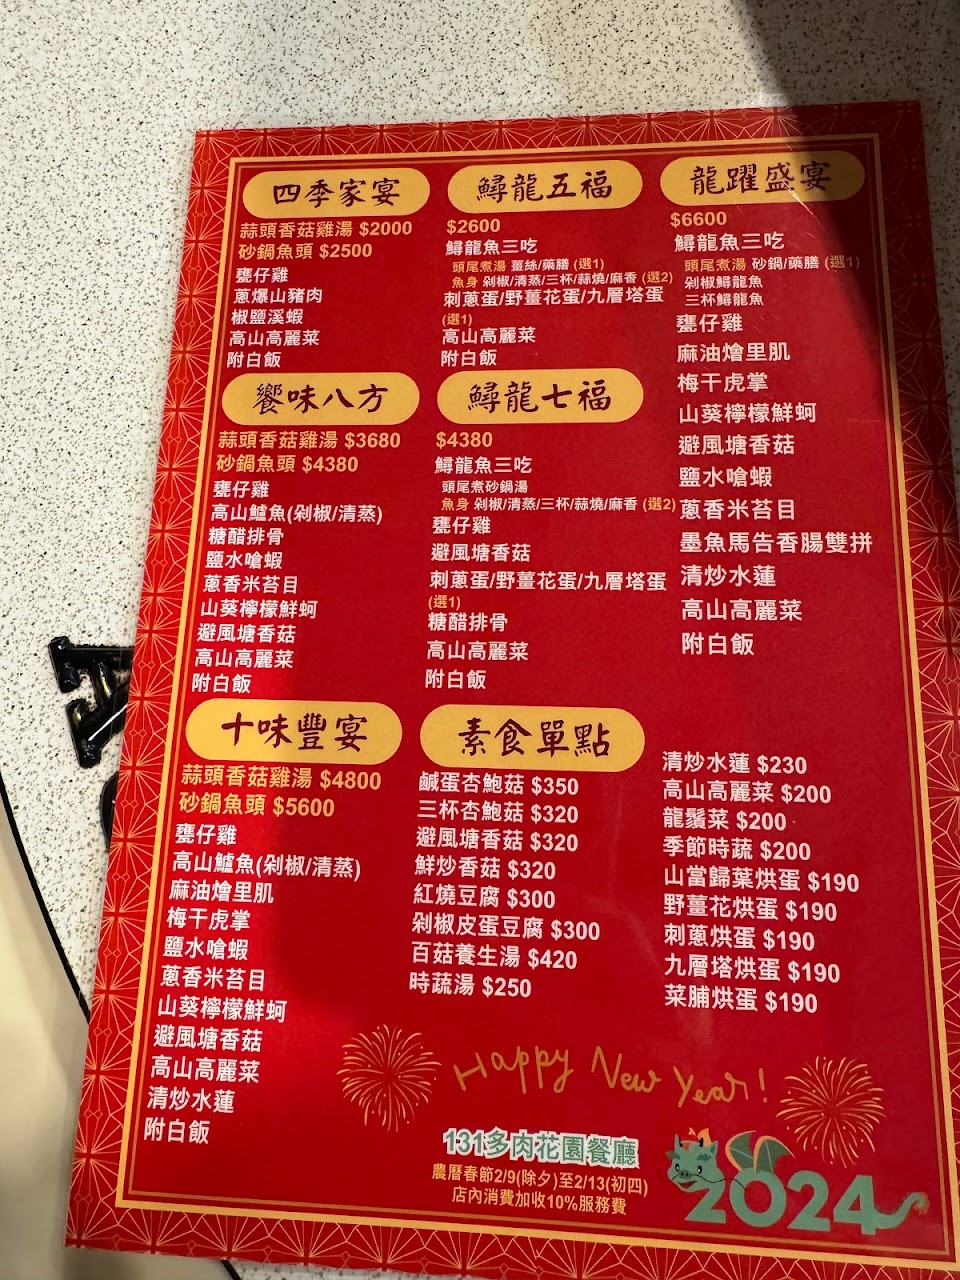 四季家宴
蒜頭香菇雞湯 $2000
砂鍋魚頭 $2500
甕仔雞
蔥爆山豬肉
椒鹽溪蝦
高山高麗菜
附白飯
饗味八方
蒜頭香菇雞湯 $3680
砂鍋魚頭 $4380
甕仔雞
高山鱸魚(剁椒/清蒸)
糖醋排骨
鹽水嗆蝦
蔥香米苔目
山葵檸檬鮮蚵
避風塘香菇
高山高麗菜
附白飯
十味豐宴
蒜頭香菇雞湯 $4800
砂鍋魚頭 $5600
甕仔雞
高山鱸魚(剁椒/清蒸)
麻油燴里肌
梅干虎掌
鹽水嗆蝦
蔥香米苔目
山葵檸檬鮮蚵
避風塘香菇
高山高麗菜
清炒水蓮
附白飯
鱘龍五福
$2600
鱘龍魚三吃
頭尾煮湯 薑絲/藥膳 (選1)
魚身 剁椒/清蒸/三杯/蒜燒/麻香 (選2)
刺蔥蛋/野薑花蛋/九層塔蛋
(選1)
高山高麗菜
附白飯
鱘龍七福
$4380
鱘龍魚三吃
頭尾煮砂鍋湯
魚身 剁椒/清蒸/三杯/蒜燒/麻香 (選2)
甕仔雞
避風塘香菇
刺蔥蛋/野薑花蛋/九層塔蛋
(選1)
糖醋排骨
高山高麗菜
附白飯
龍躍盛宴
$6600
鱘龍魚三吃
頭尾煮湯 砂鍋/藥膳 (選1)
剁椒鱘龍魚
三杯鱘龍魚
甕仔雞
麻油燴里肌
梅干虎掌
山葵檸檬鮮蚵
避風塘香菇
鹽水嗆蝦
蔥香米苔目
墨魚馬告香腸雙拼
清炒水蓮
高山高麗菜
附白飯
素食單點
鹹蛋杏鮑菇 $350
三杯杏鮑菇 $320
避風塘香菇 $320
鮮炒香菇 $320
紅燒豆腐 $300
剁椒皮蛋豆腐 $300
百菇養生湯 $420
時蔬湯 $250
清炒水蓮 $230
高山高麗菜 $200
龍鬚菜 $200
季節時蔬 $200
山當歸葉烘蛋 $190
野薑花烘蛋 $190
刺蔥烘蛋 $190
九層塔烘蛋 $190
菜脯烘蛋 $190
Happy New Year!
131多肉花園餐廳
農曆春節2/9(除夕)至2/13(初四)
店內消費加收10%服務費
2024